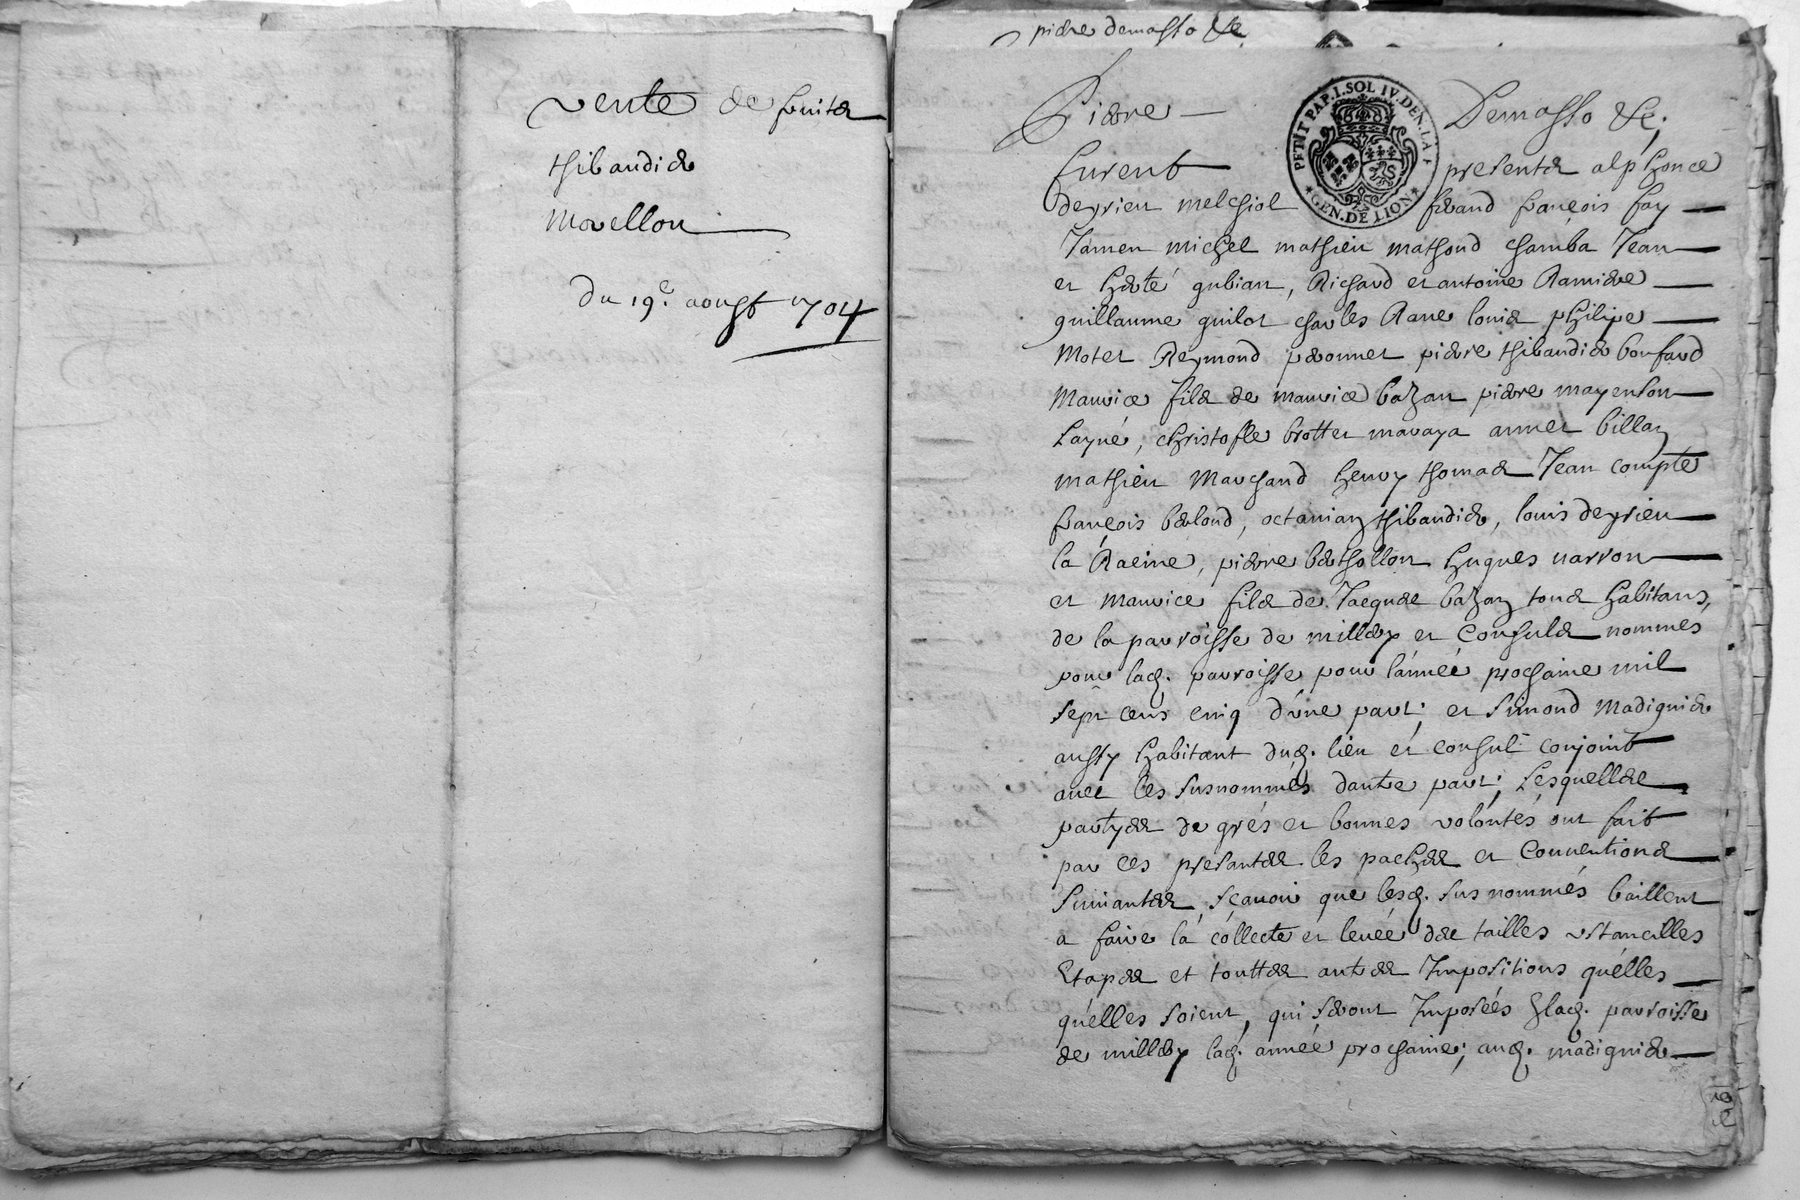 vente de fruits
thibaudier
Morellon
du 19e. aoust 1704
pierre demasso &c
Pierre Demasso &c.
PETIT PAP. I. SOL IV. DEN. LA F
GEN. DE LION
furent presents alphonce
deyrieu melchiol feraud françois fay
Jamen michel mathieu mathoud chamba Jean
et herté gubian, Richard et antoine Ramiere
guillaume guilot charles Rane louis philipe
Motet Reymond peronnet pierre thibaudier bonfard
Maurice fils de maurice bazan pierre mayenson
Layné, christofle brottet maraya annet billaz
mathieu Marchand henry thomas Jean compte
françois berloud, octavian thibaudier, louis deyrieu
la Racine, pierre berthollon hugues varron
et Maurice fils de Jacques bazan tous habitans,
de la parroisse de millery et Consuls nommés
pour lad. parroisse pour l'année prochaine mil
sept cens cinq d'une part; et simond Madignier
aussy habitant dud. lieu et consul conjoint
avec les susnommés dautre part, Lesquelles
partyes de grés et bonnes volontés ont fait
par ces presantes les paches et Conventions
suivantes, sçavoir que lesd. susnommés baillent
a faire la collecte et levée des tailles ustancilles
Etapes et touttes autres Impositions quelles
quelles soient, qui seront Imposées sur lad. parroisse
de millery lad. année prochaine; aud. madignier